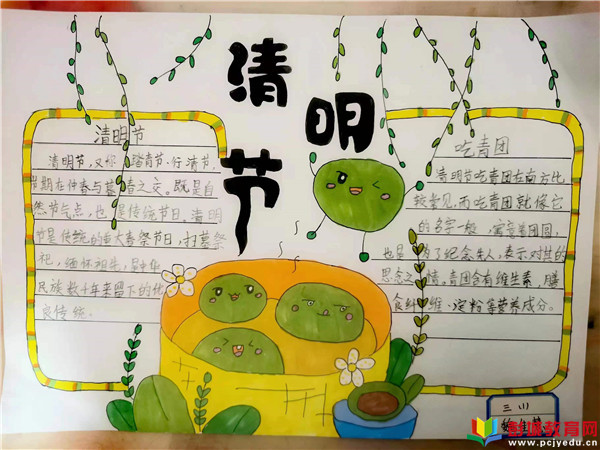 清明节
清明节
清明节,又称 踏青节、行清节,
节期在仲春与暮春之交。既是自
然节气点,也是传统节日。清明
节是传统的重大春祭节日,扫墓祭
祀,缅怀祖先,是中华
民族数千年来留下的优
良传统.
吃青团
清明节吃青团在南方比
较常见,而吃青团就像它
的名字一般,寓意着团圆,
也是 为了纪念先人,表示对其的
思念之 情。青团含有维生素,膳
食纤 维、淀粉等营养成分。
三(1)
彭城教育网
www.pcjyedu.cn